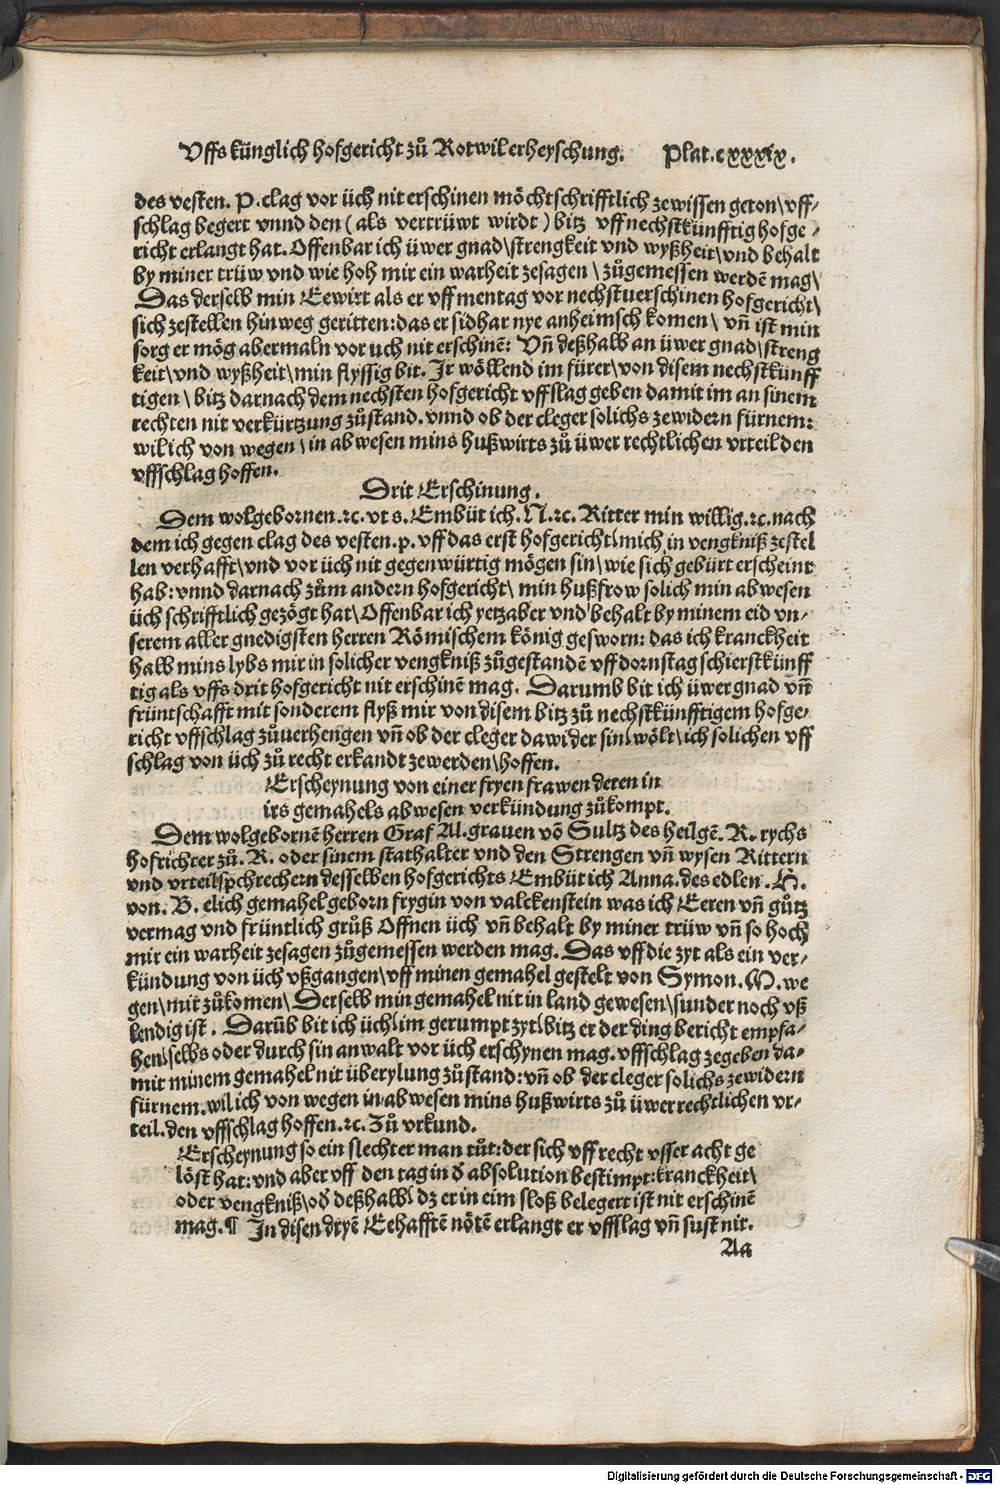 Uffs künglich hofgericht zů Rotwil erheyschung. Plat. cxxxix.
des vesten. P. clag vor üch nit erschinen möcht schrifftlich ze wissen geton\ vff-
schlag begert vnnd den ( als vertrüwt wirdt ) bitz vff nechstkünfftig hofge-
richt erlangt hat. Offenbar ich üwer gnad\ strengkeit vnd wyßheit\ vnd behalt
by miner trüw vnd wie hoh mir ein warheit zesagen \ zůgemessen werdē mag\
Das derselb min Eewirt als er vff mentag vor nechstuerschinen hofgericht\
sich zestellen hinweg geritten: das er sidhar nye anheimsch komen\ vn̄ ist min
sorg er mög abermaln vor uch nit erschinē: Vn̄ deßhalb an üwer gnad\ streng
keit\ vnd wyßheit\ min flyssig bit. Ir wöllend im fürer\ von disem nechstkünff
tigen \ bitz darnach dem nechsten hofgericht vffslag geben damit im an sinem
rechten nit verkürtzung zůstand. vnnd ob der cleger solichs zewidern fürnem:
wil ich von wegen \ in abwesen mins hußwirts zů üwer rechtlichen vrteil den
vffschlag hoffen.
Drit Erschinung.
Dem wolgebornen. ꝛc. vt s. Embüt ich. N. ꝛc. Ritter min willig. ꝛc. nach
dem ich gegen clag des vesten. p. vff das erst hofgericht\ mich in vengkniß zestel
len verhafft\ vnd vor üch nit gegenwürtig mögen sin\ wie sich gebürt erscheint
hab: vnnd darnach zům andern hofgericht\ min hußfrow solich min abwesen
üch schrifftlich gezögt hat\ Offenbar ich yetz aber vnd behalt by minem eid vn-
serem aller gnedigsten herren Römischem könig gesworn: das ich kranckheit
halb mins lybs mir in solicher vengkniß zůgestandē vff dornstag schierstkünff
tig als vffs drit hofgericht nit erschinē mag. Darumb bit ich üwer gnad vn̄
früntschafft mit sonderem flyß mir von disem bitz zů nechstkünfftigem hofge-
richt vffschlag zůuerhengen vn̄ ob der cleger dawider sin wölt\ ich solichen vff
schlag von üch zů recht erkandt zewerden\ hoffen.
Erscheynung von einer fryen frawen deren in
irs gemahels abwesen verkündung zůkompt.
Dem wolgebornē herren Graf Al. grauen vō Sultz des heilgē. R. rychs
hofrichter zů. R. oder sinem stathalter vnd den Strengen vn̄ wysen Rittern
vnd vrteilspchrechern desselben hofgerichts Embüt ich Anna. des edlen. H.
von. B. elich gemahel geborn frygin von valckenstein was ich Eeren vn̄ gůtz
vermag vnd früntlich grůß Offnen üch vn̄ behalt by miner trüw vn̄ so hoch
mir ein warheit zesagen zůgemessen werden mag. Das vff die zyt als ein ver-
kündung von üch vßgangen\ vff minen gemahel gestelt von Symon. M. we
gen\ mir zůkomen\ Derselb min gemahel nit in land gewesen\ sunder noch vß
lendig ist. Darūb bit ich üch\ im gerumpt zyt\ bitz er der ding bericht empfa-
hen\ selbs oder durch sin anwalt vor üch erschynen mag. vffschlag zegeben da-
mit minem gemahel nit überylung zůstand: vn̄ ob der cleger solichs zewidern
fürnem. wil ich von wegen in abwesen mins hußwirts zů üwer rechtlichen vr-
teil. den vffschlag hoffen. ꝛc. Zů vrkund.
Erscheynung so ein slechter man tůt: der sich vff recht vsser acht ge
löst hat: vnd aber vff den tag in ð absolution bestimpt: kranckheit\
oder vengkniß\ oð deßhalb\ dz er in eim sloß belegert ist nit erschinē
mag. ¶ In disen dryē Eehafftē nötē erlangt er vffslag vn̄ sust nit.
Aa
Digitalisierung gefördert durch die Deutsche Forschungsgemeinschaft - DFG